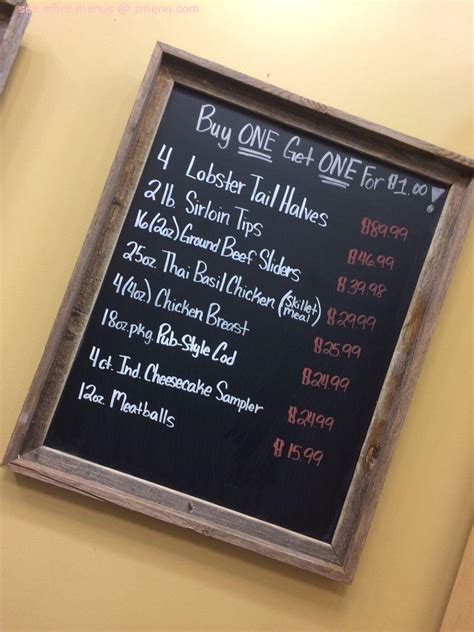 see more menus @ zmenu.com
Buy ONE Get ONE For $1.00!
4 Lobster Tail Halves $89.99
2 lb. Sirloin Tips $46.99
16(2oz) Ground Beef Sliders $39.98
25oz. Thai Basil Chicken (skillet meal) $29.99
4(4oz) Chicken Breast $25.99
18oz. pkg. Pub-Style Cod $24.99
4ct. Ind. Cheesecake Sampler $24.99
12oz. Meatballs $15.99